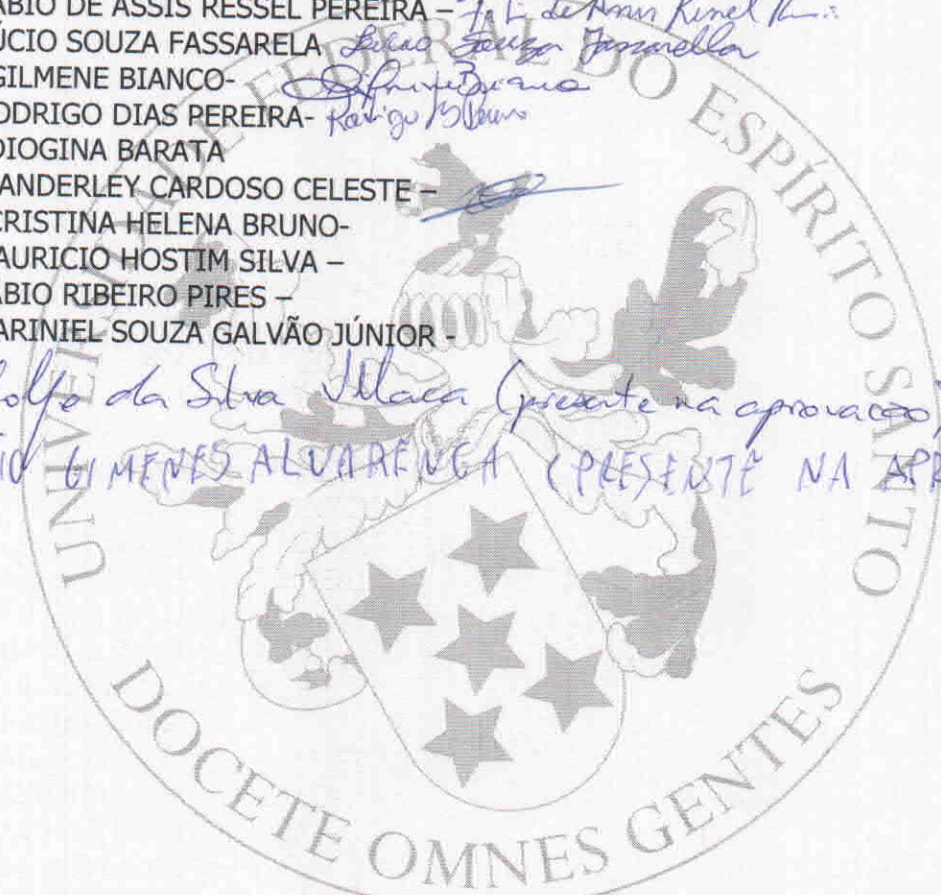 ÁBIO DE ASSIS RESSEL PEREIRA –
ÚCIO SOUZA FASSARELA Lúcio Souza Fassarella
GILMENE BIANCO- Gilmene Bianco
ODRIGO DIAS PEREIRA- Rodrigo
DIOGINA BARATA
ANDERLEY CARDOSO CELESTE –
CRISTINA HELENA BRUNO-
AURICIO HOSTIM SILVA –
ÁBIO RIBEIRO PIRES –
ARINIEL SOUZA GALVÃO JÚNIOR -
olfo da Silva Villaca (presente na aprovação
GIMENES ALVARENGA (PRESENTE NA APR
UNIVERSIDADE FEDERAL DO ESPÍRITO SANTO
DOCETE OMNES GENTES